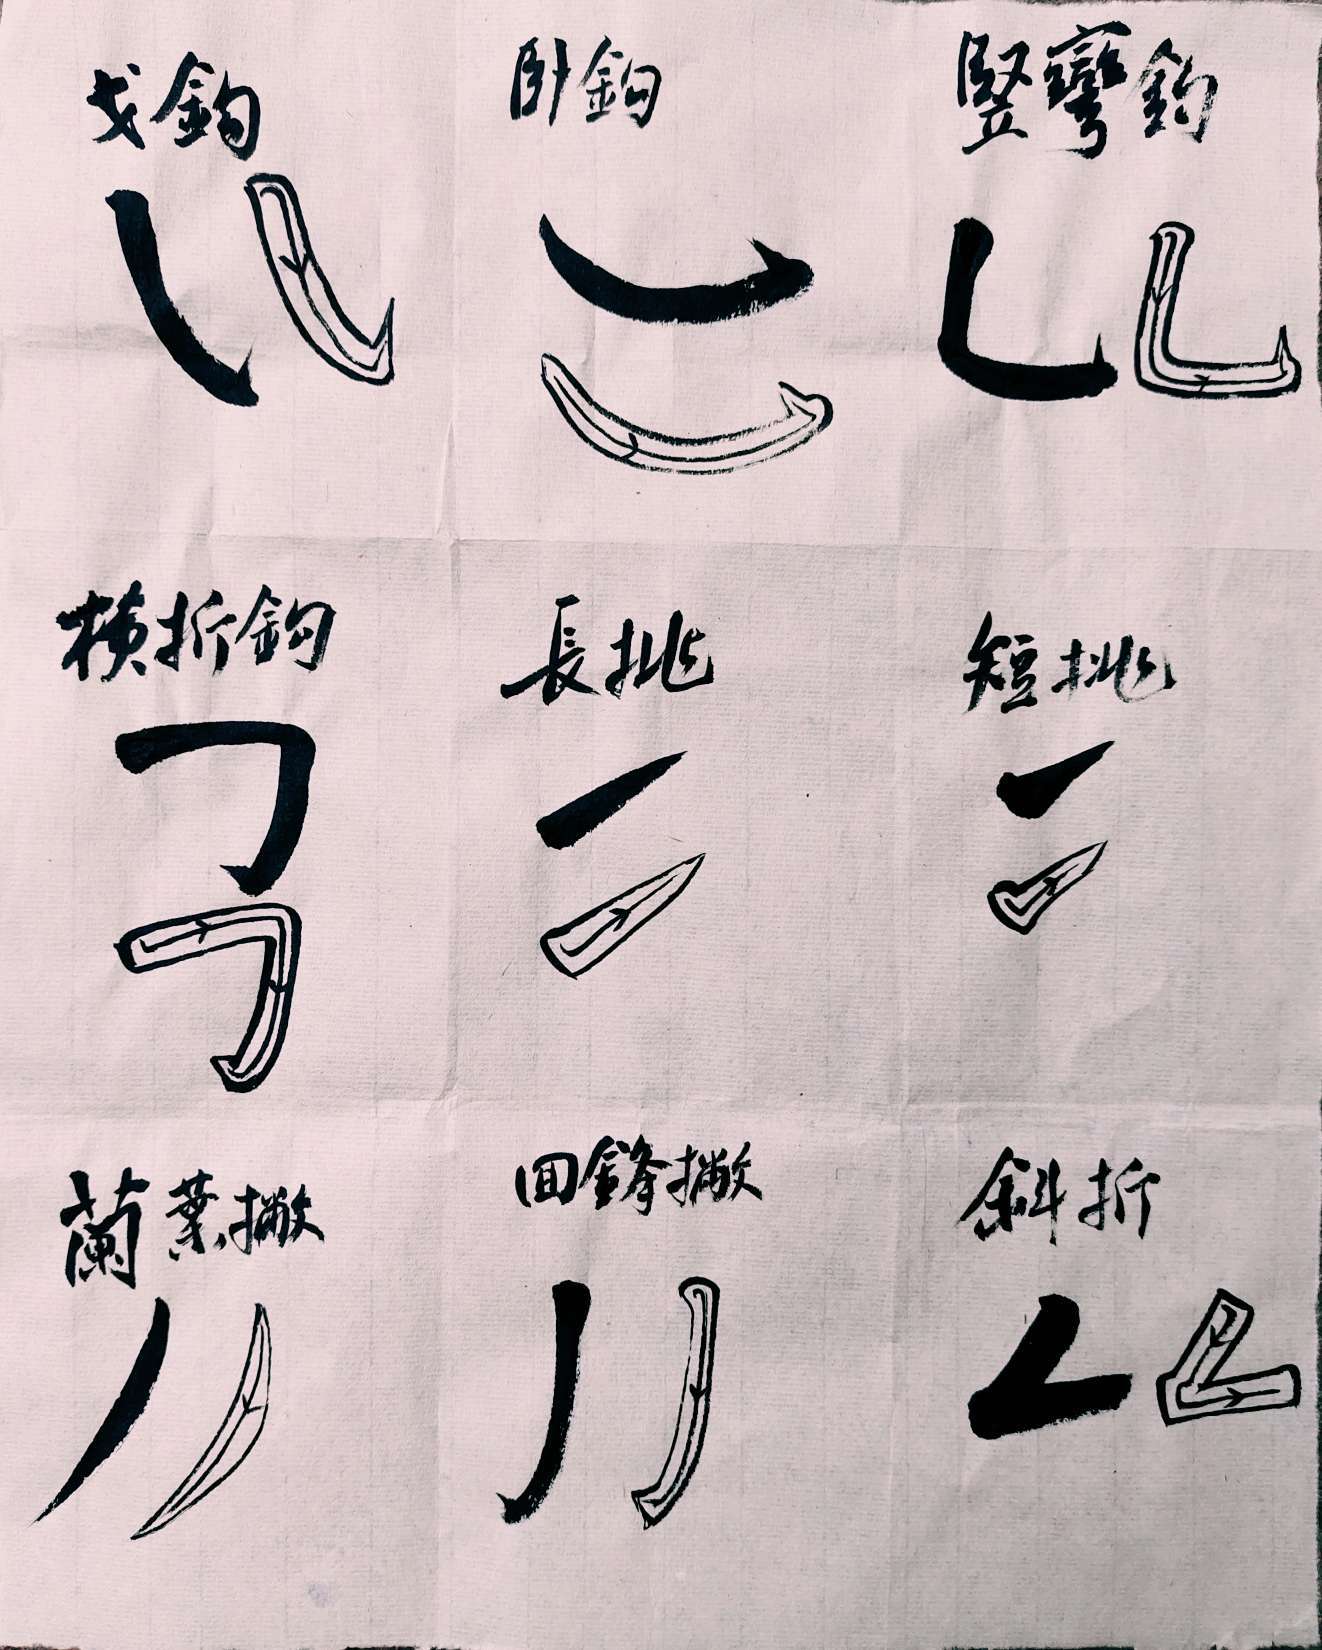 戈鉤
卧鉤
竪彎鉤
横折鉤
長挑
短挑
蘭葉撇
回鋒撇
斜折